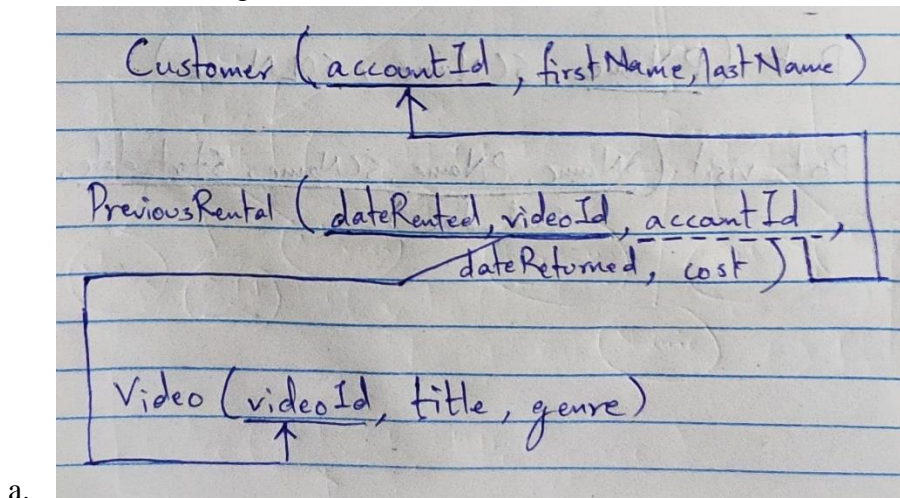 Customer (accountId, firstName, lastName)
PreviousRental (dateRented, videoId, accountId,
dateReturned, cost)
Video (videoId, title, genre)
a.